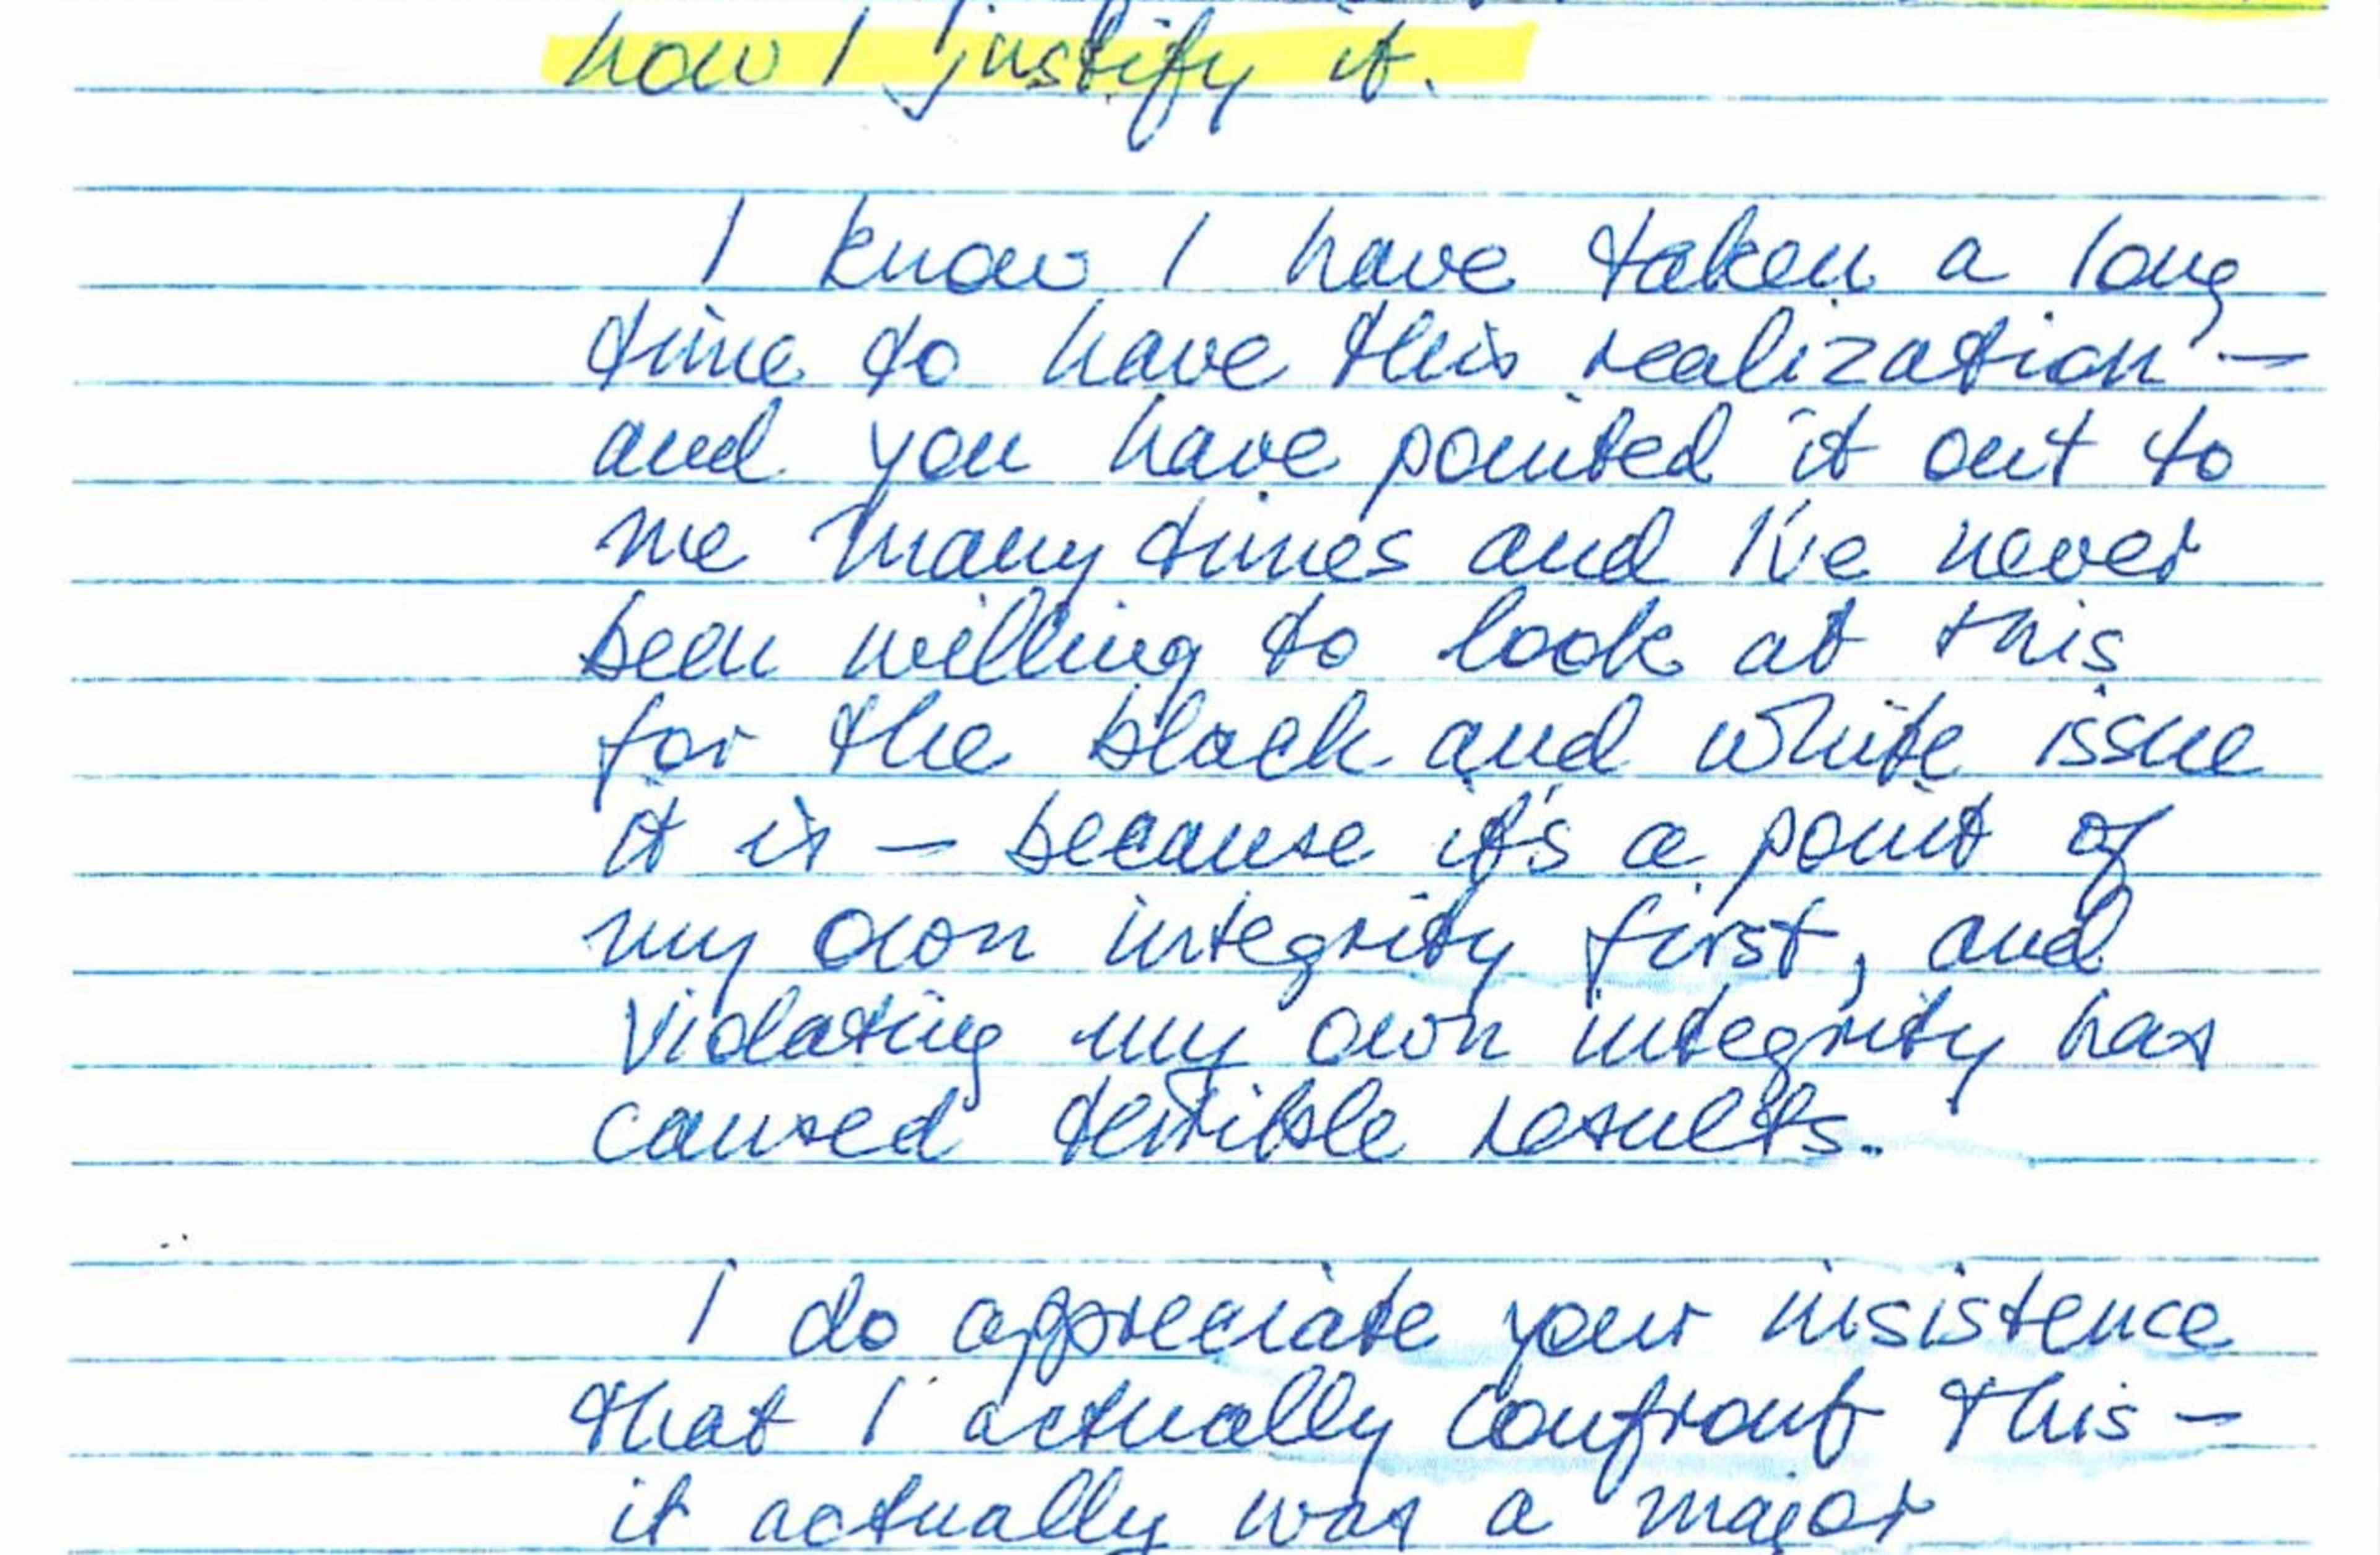 how I justify it.
I know I have taken a long
time to have this realization –
and you have pointed it out to
me many times and I've never
been willing to look at this
for the black and white issue
it is – because it's a point of
my own integrity first, and
violating my own integrity has
caused terrible results.
I do appreciate your insistence
that I actually confront this –
it actually was a major